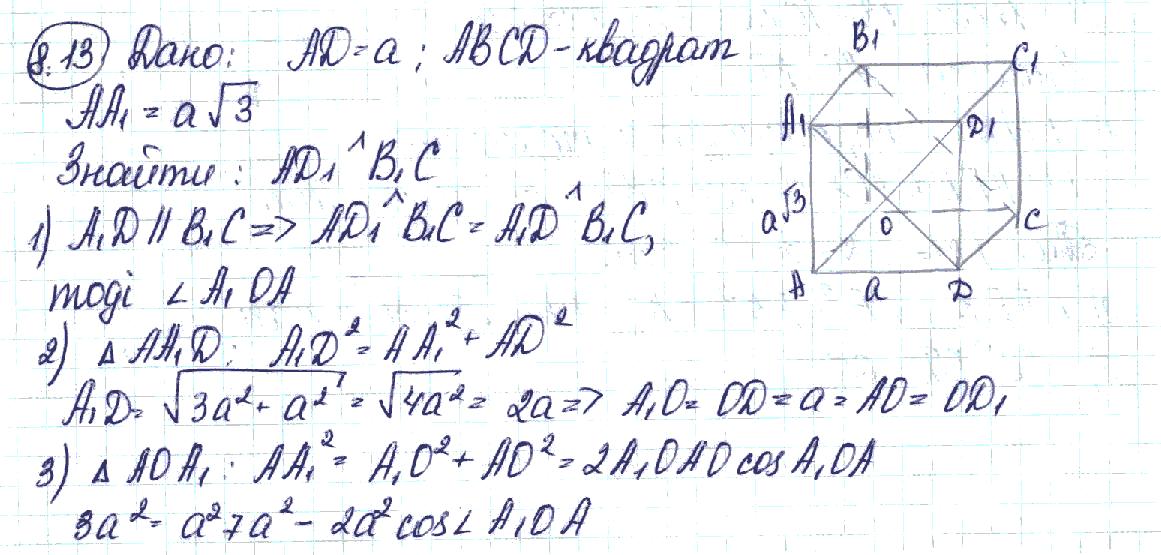 8.13 Дано: AD = a ; ABCD - квадрат
AA₁ = a√3
Знайти: AD₁ ^ B₁C
1) A₁D || B₁C => AD₁ ^ B₁C = A₁D ^ B₁C,
тоді ∠ A₁OA
2) △ AA₁D: A₁D² = AA₁² + AD²
A₁D = √3a² + a² = √4a² = 2a => A₁O = OD = a = AO = OD₁
3) △ AOA₁: AA₁² = A₁O² + AO² = 2A₁OAO cos A₁OA
3a² = a² + a² - 2a² cos ∠ A₁OA
B₁
C₁
A₁
D₁
a√3
O
C
A
a
D